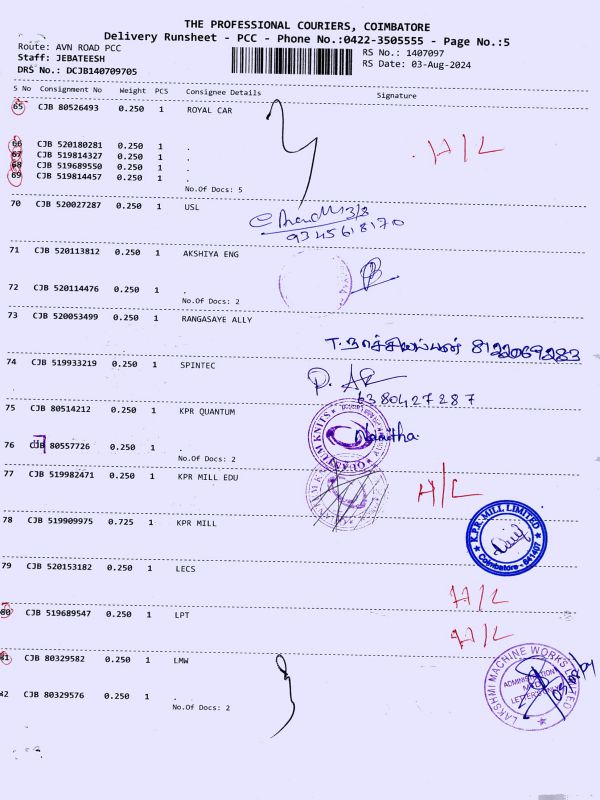 THE PROFESSIONAL COURIERS, COIMBATORE
Delivery Runsheet - PCC - Phone No.:0422-3505555 - Page No.:5
Route: AVN ROAD PCC RS No.: 1407097
Staff: JEBATEESH RS Date: 03-Aug-2024
DRS No.: DCJB140709705
S No Consignment No Weight PCS Consignee Details Signature
65 CJB 80526493 0.250 1 ROYAL CAR
H/L
66 CJB 520180281 0.250 1 .
67 CJB 519814327 0.250 1 .
68 CJB 519689550 0.250 1 .
69 CJB 519814457 0.250 1 .
No.Of Docs: 5
70 CJB 520027287 0.250 1 USL
9345618170
71 CJB 520113812 0.250 1 AKSHIYA ENG
72 CJB 520114476 0.250 1 .
No.Of Docs: 2
73 CJB 520053499 0.250 1 RANGASAYE ALLY
8122069283
74 CJB 519933219 0.250 1 SPINTEC
6380427287
75 CJB 80514212 0.250 1 KPR QUANTUM
QUANTUM KNITS
Namitha
76 CJB 80557726 0.250 1 .
No.Of Docs: 2
77 CJB 519982471 0.250 1 KPR MILL EDU
H/L
78 CJB 519909975 0.725 1 KPR MILL
K.P.R. MILL LIMITED
Coimbatore - 641407
79 CJB 520153182 0.250 1 LECS
H/L
80 CJB 519689547 0.250 1 LPT
H/L
81 CJB 80329582 0.250 1 LMW
LAKSHMI MACHINE WORKS LIMITED
82 CJB 80329576 0.250 1 .
No.Of Docs: 2